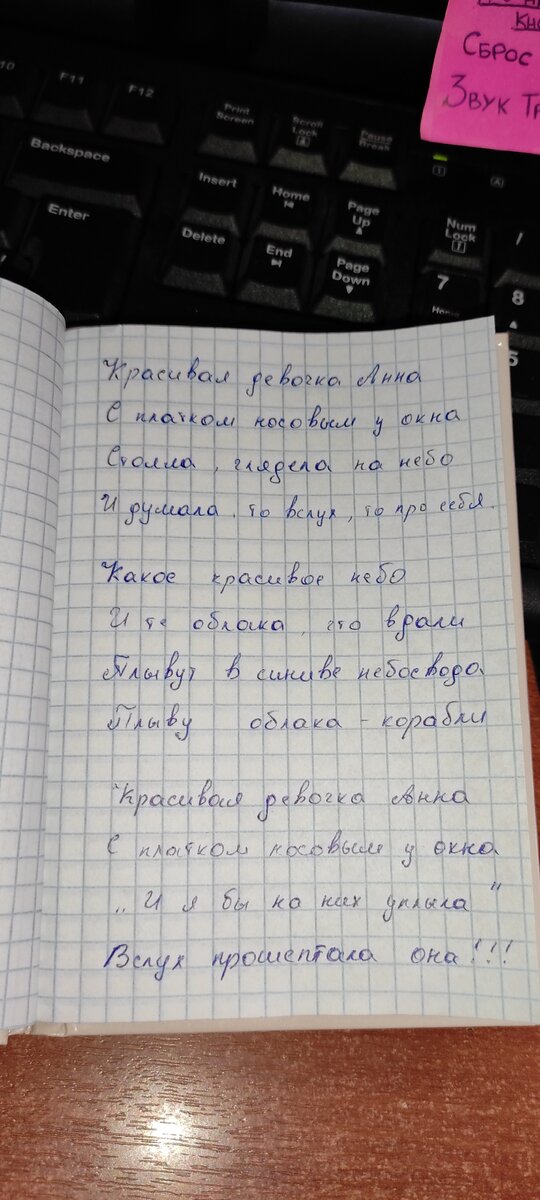 F11
F12
Print
Screen
Scroll
Lock
Pause
Break
Backspace
Insert
Home
Page
Up
Num
Lock
/
Enter
Delete
End
Page
Down
7
8
5
Сброс
Звук
Красивая девочка Анна
С платком носовым у окна
Стояла, глядела на небо
И думала, то вслух, то про себя.
Какое красивое небо
И те облака, что вдали
Плывут в синиве небосвода
Плыву облака - корабли
Красивая девочка Анна
С платком носовым у окна
„И я бы на них уплыла"
Вслух прошептала она!!!